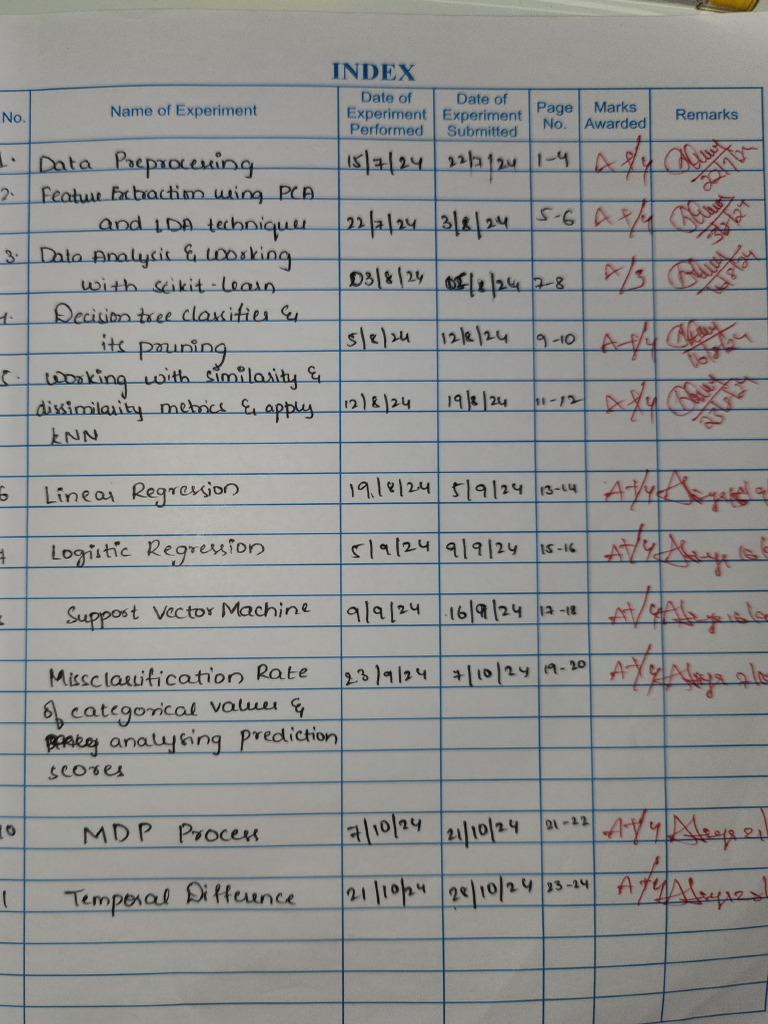 INDEX
No. Name of Experiment Date of Experiment Performed Date of Experiment Submitted Page No. Marks Awarded Remarks
1. Data Preprocessing 15/7/24 22/7/24 1-4 A+/4
2. Feature Extraction using PCA
and LDA techniques 22/7/24 3/8/24 5-6 A+/4
3. Data Analysis & Working
with scikit-learn 03/8/24 05/8/24 7-8 A/3
Decision tree classifies &
its pruning 5/8/24 12/8/24 9-10 A+/4
Working with similarity &
dissimilarity metrics & apply 12/8/24 19/8/24 11-12 A+/4
kNN
6 Linear Regression 19/8/24 5/9/24 13-14 A+/4
7 Logistic Regression 5/9/24 9/9/24 15-16 A+/4
Support Vector Machine 9/9/24 16/9/24 17-18 A+/4
Missclassification Rate 23/9/24 7/10/24 19-20 A+/4
of categorical values &
analysing prediction
scores
10 MDP Process 7/10/24 21/10/24 21-22 A+/4
1 Temporal Difference 21/10/24 28/10/24 23-24 A+/4